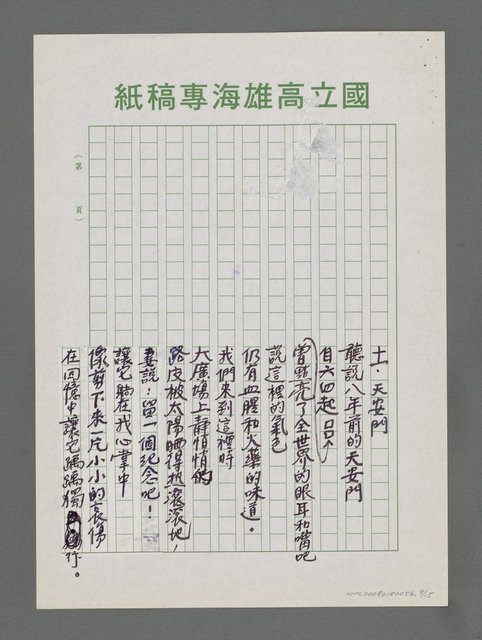 國立高雄海專稿紙
（第　頁）
十一·天安門
聽說八年前的天安門
自六四起
曾點亮了全世界的眼耳和嘴吧
說這裡的氣色
仍有血腥和火藥的味道。
我們來到這裡時
大廣場上靜悄悄的
路皮被太陽晒得熱滾滾地，
妻說：留一個紀念吧！
讓它躺在我心掌中
像剪下來一片小小的哀傷
在回憶中讓它踽踽獨行。